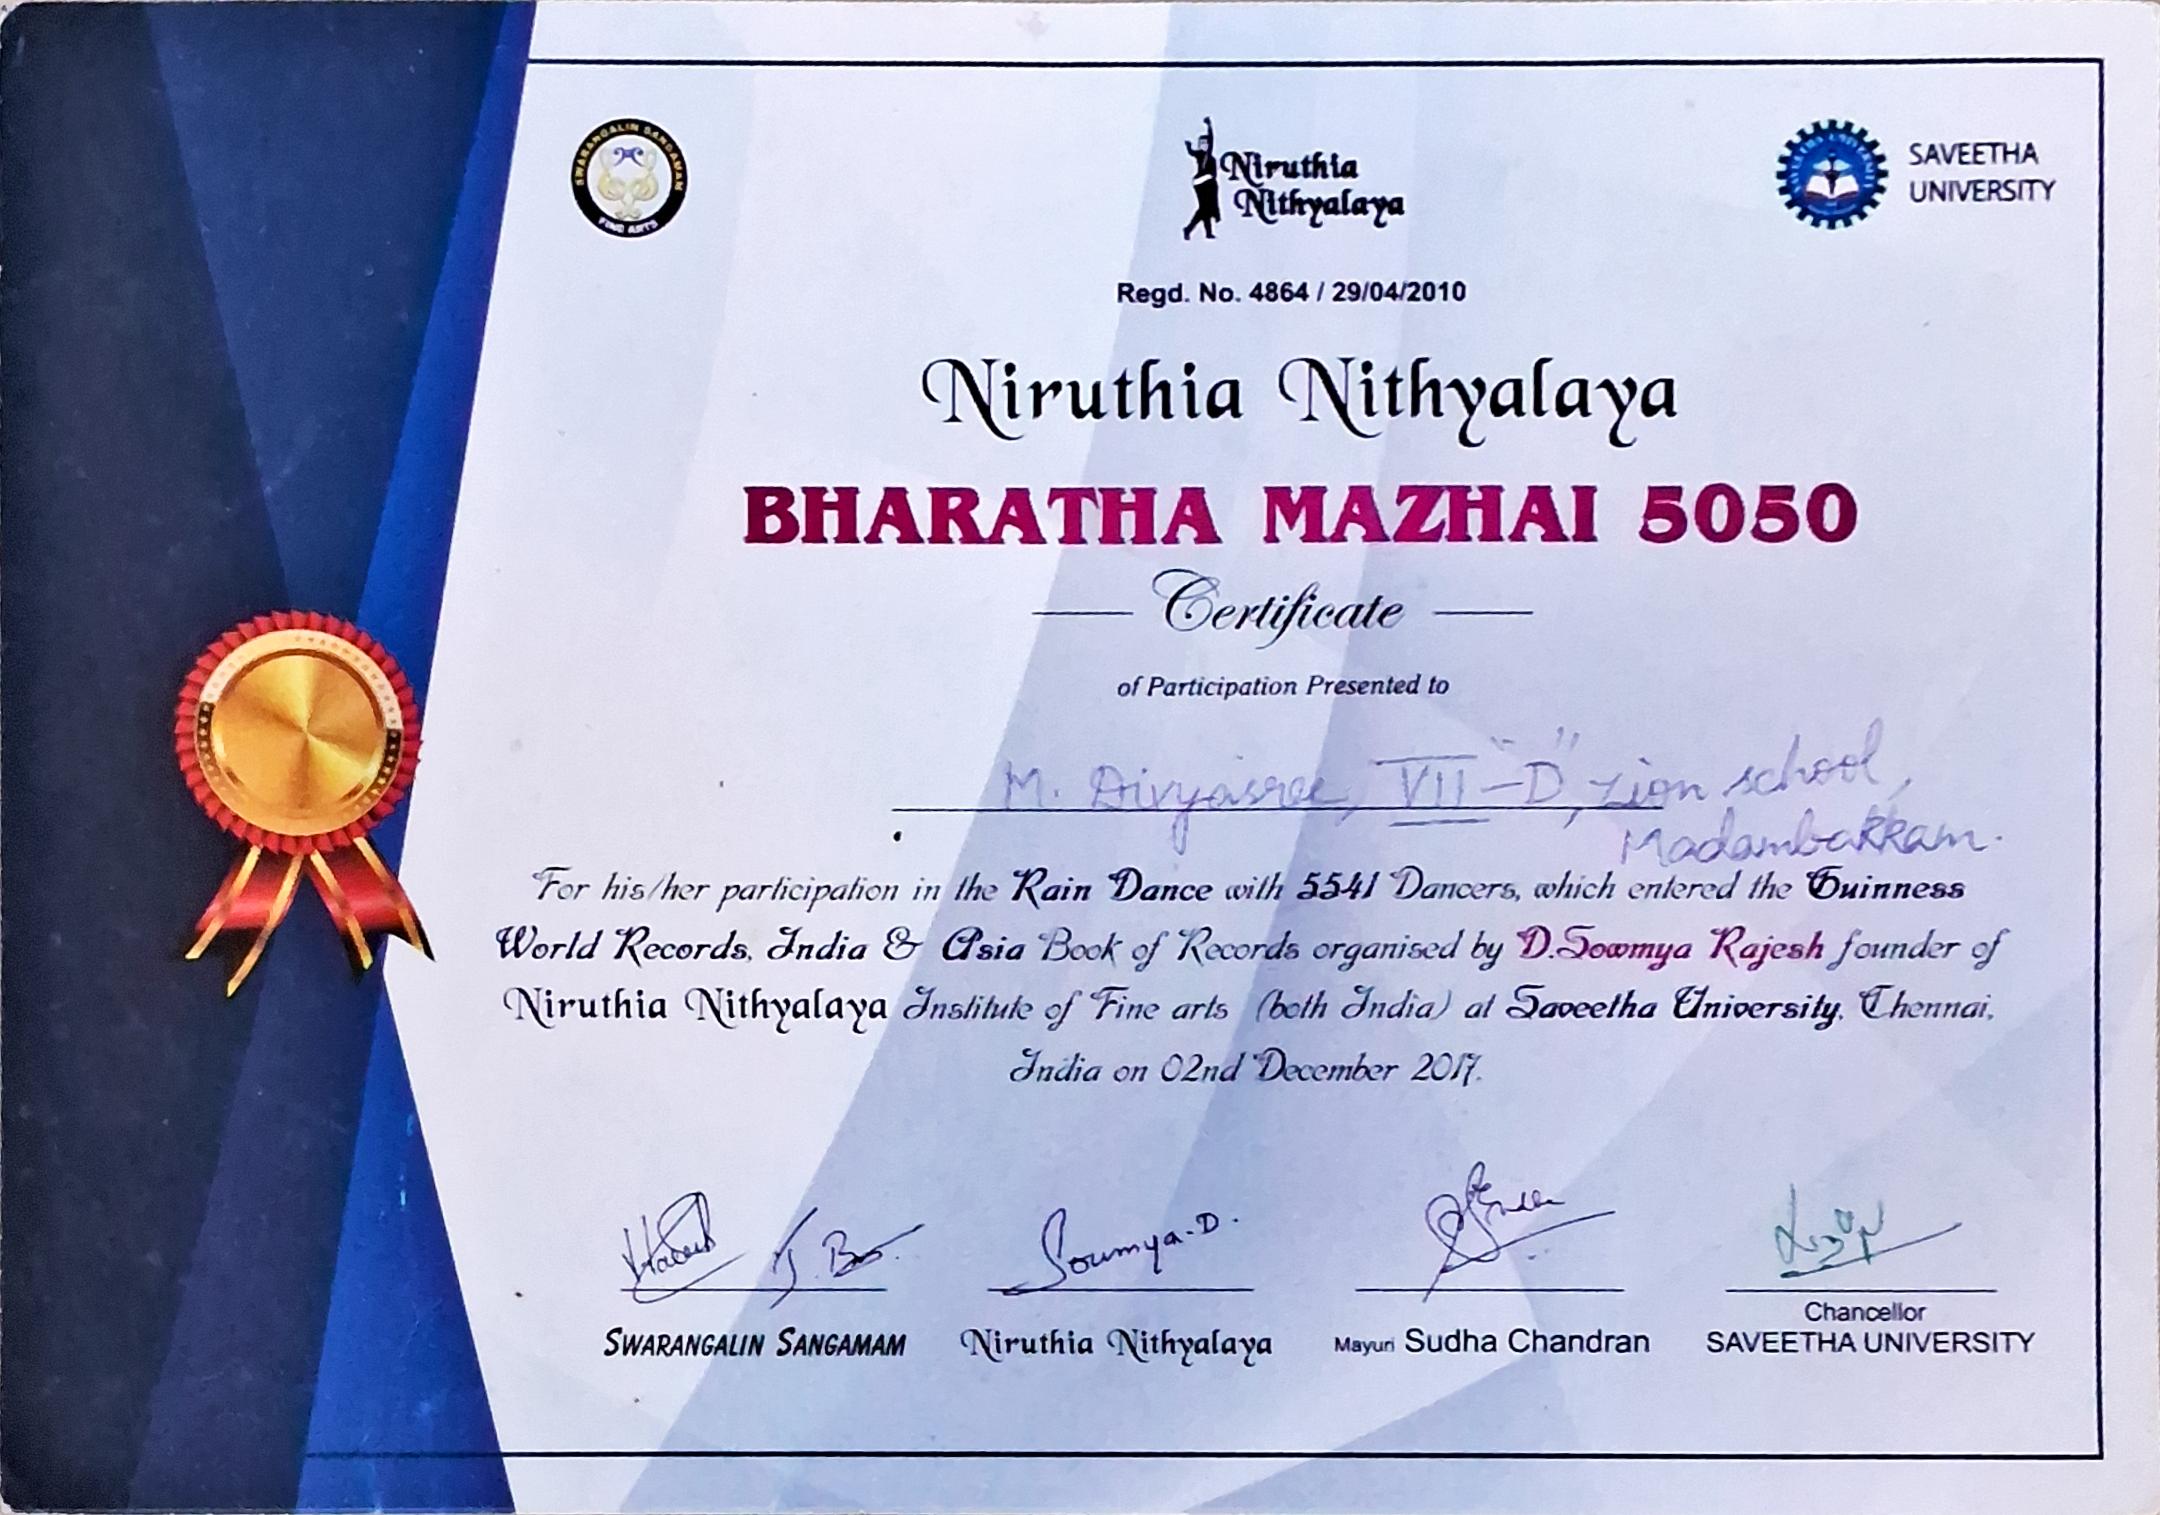 SWARANGALIN SANGAMAM
FINE ARTS
Niruthia
Nithyalaya
SAVEETHA
UNIVERSITY
Regd. No. 4864 / 29/04/2010
Niruthia Nithyalaya
BHARATHA MAZHAI 5050
Certificate
of Participation Presented to
M. Divyasree, VII - "D", Zion school,
Madambakkam.
For his/her participation in the Rain Dance with 5541 Dancers, which entered the Guinness
World Records, India & Asia Book of Records organised by D.Sowmya Rajesh founder of
Niruthia Nithyalaya Institute of Fine arts (both India) at Saveetha University, Chennai,
India on 02nd December 2017.
Soumya.D.
SWARANGALIN SANGAMAM
Niruthia Nithyalaya
Mayuri Sudha Chandran
Chancellor
SAVEETHA UNIVERSITY